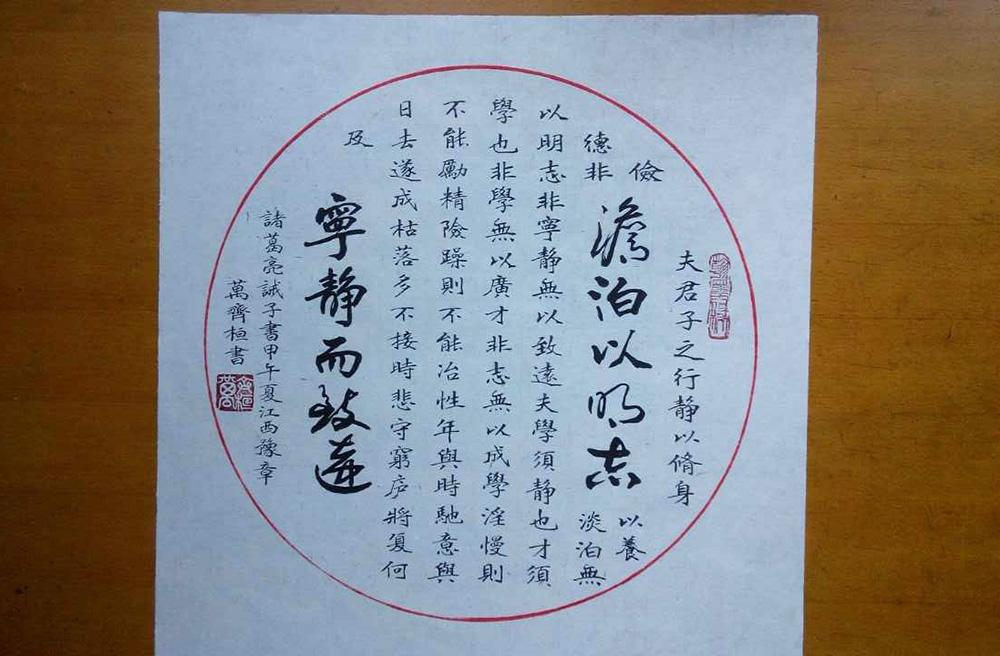 夫君子之行静以脩身
儉
以養
德非
淡泊無
澹泊以明志
以明志非寧静無以致遠夫學須静也才須
學也非學無以廣才非志無以成學淫慢則
不能勵精險躁則不能冶性年與時馳意與
日去遂成枯落多不接時悲守窮庐將复何
及
寧静而致遠
諸葛亮誡子書甲午夏江西豫章
萬齊桓書